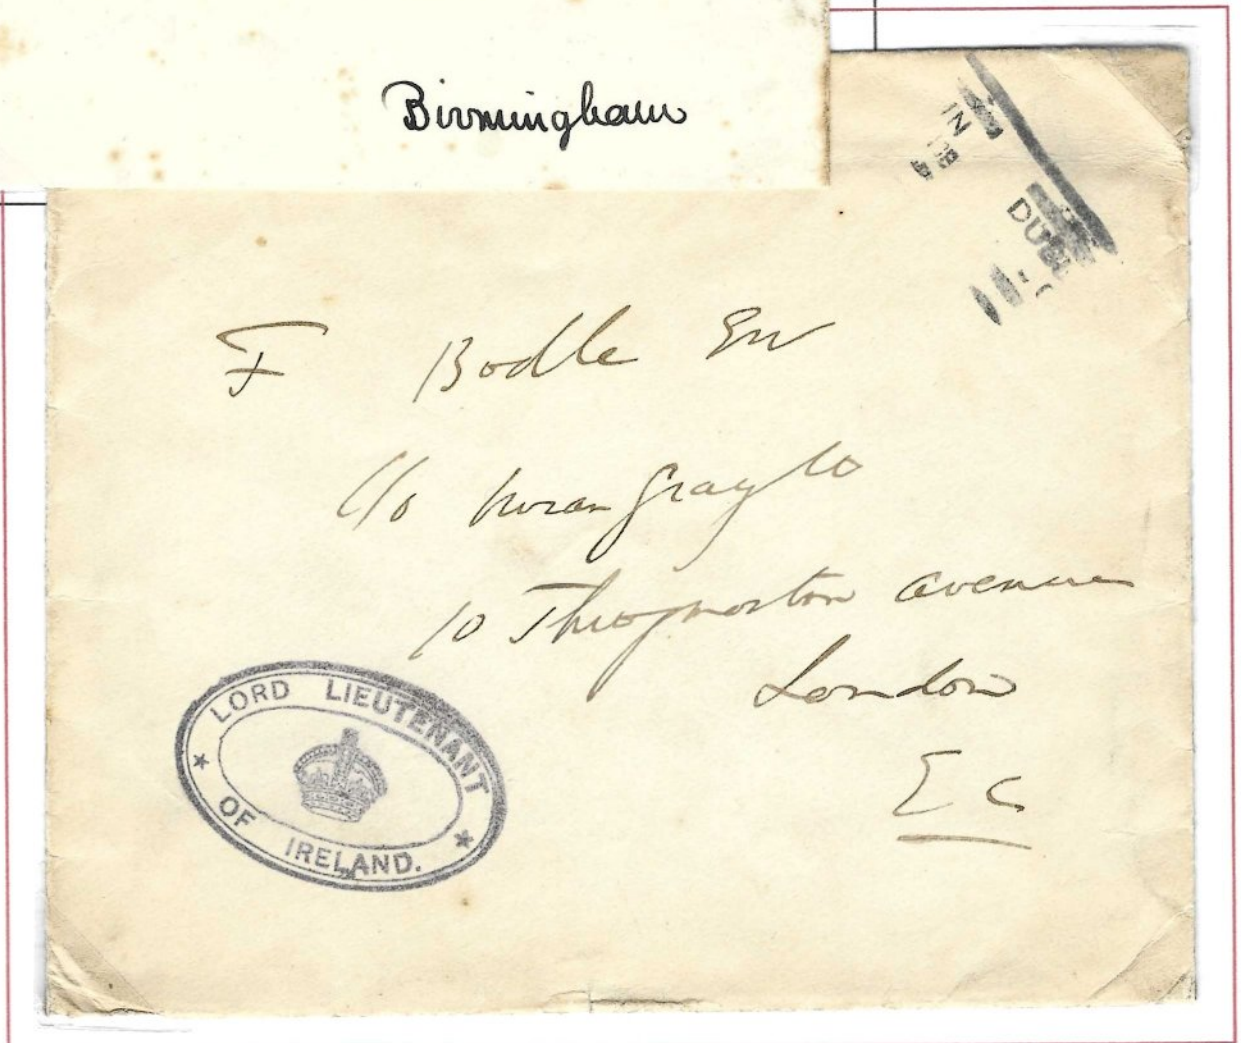 Birmingham
IN
DUBL
F Bodle Esq
C/o Moran Gray Co
10 Throgmorton avenue
London
E C
LORD LIEUTENANT
OF IRELAND.